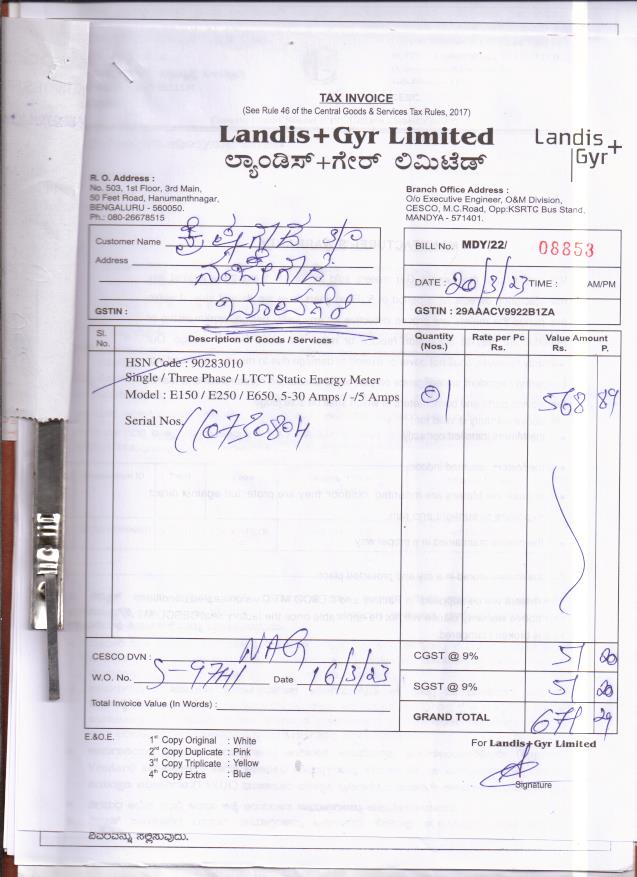 TAX INVOICE
(See Rule 46 of the Central Goods & Services Tax Rules, 2017)
Landis+Gyr Limited
ಲ್ಯಾಂಡಿಸ್+ಗೇರ್ ಲಿಮಿಟೆಡ್
Landis+
Gyr
R. O. Address :
No. 503, 1st Floor, 3rd Main,
50 Feet Road, Hanumanthnagar,
BENGALURU - 560050.
Ph.: 080-26678515
Branch Office Address :
O/o Executive Engineer, O&M Division,
CESCO, M.C.Road, Opp:KSRTC Bus Stand,
MANDYA - 571401.
Customer Name
Address
GSTIN :
BILL No. MDY/22/ 08853
DATE : 20/3/23 TIME : AM/PM
GSTIN : 29AAACV9922B1ZA
Sl. No. Description of Goods / Services Quantity (Nos.) Rate per Pc Rs. Value Amount Rs. P.
HSN Code : 90283010
Single / Three Phase / LTCT Static Energy Meter
Model : E150 / E250 / E650, 5-30 Amps / -/5 Amps 01 568 89
Serial Nos.
CESCO DVN : NAG
W.O. No. S-9741 Date 16/3/23
Total Invoice Value (In Words) :
CGST @ 9% 51 20
SGST @ 9% 51 20
GRAND TOTAL 671 29
E.&O.E.
1st Copy Original : White
2nd Copy Duplicate : Pink
3rd Copy Triplicate : Yellow
4th Copy Extra : Blue
For Landis+Gyr Limited
Signature
ವಿವರವನ್ನು ಸಲ್ಲಿಸುವುದು.